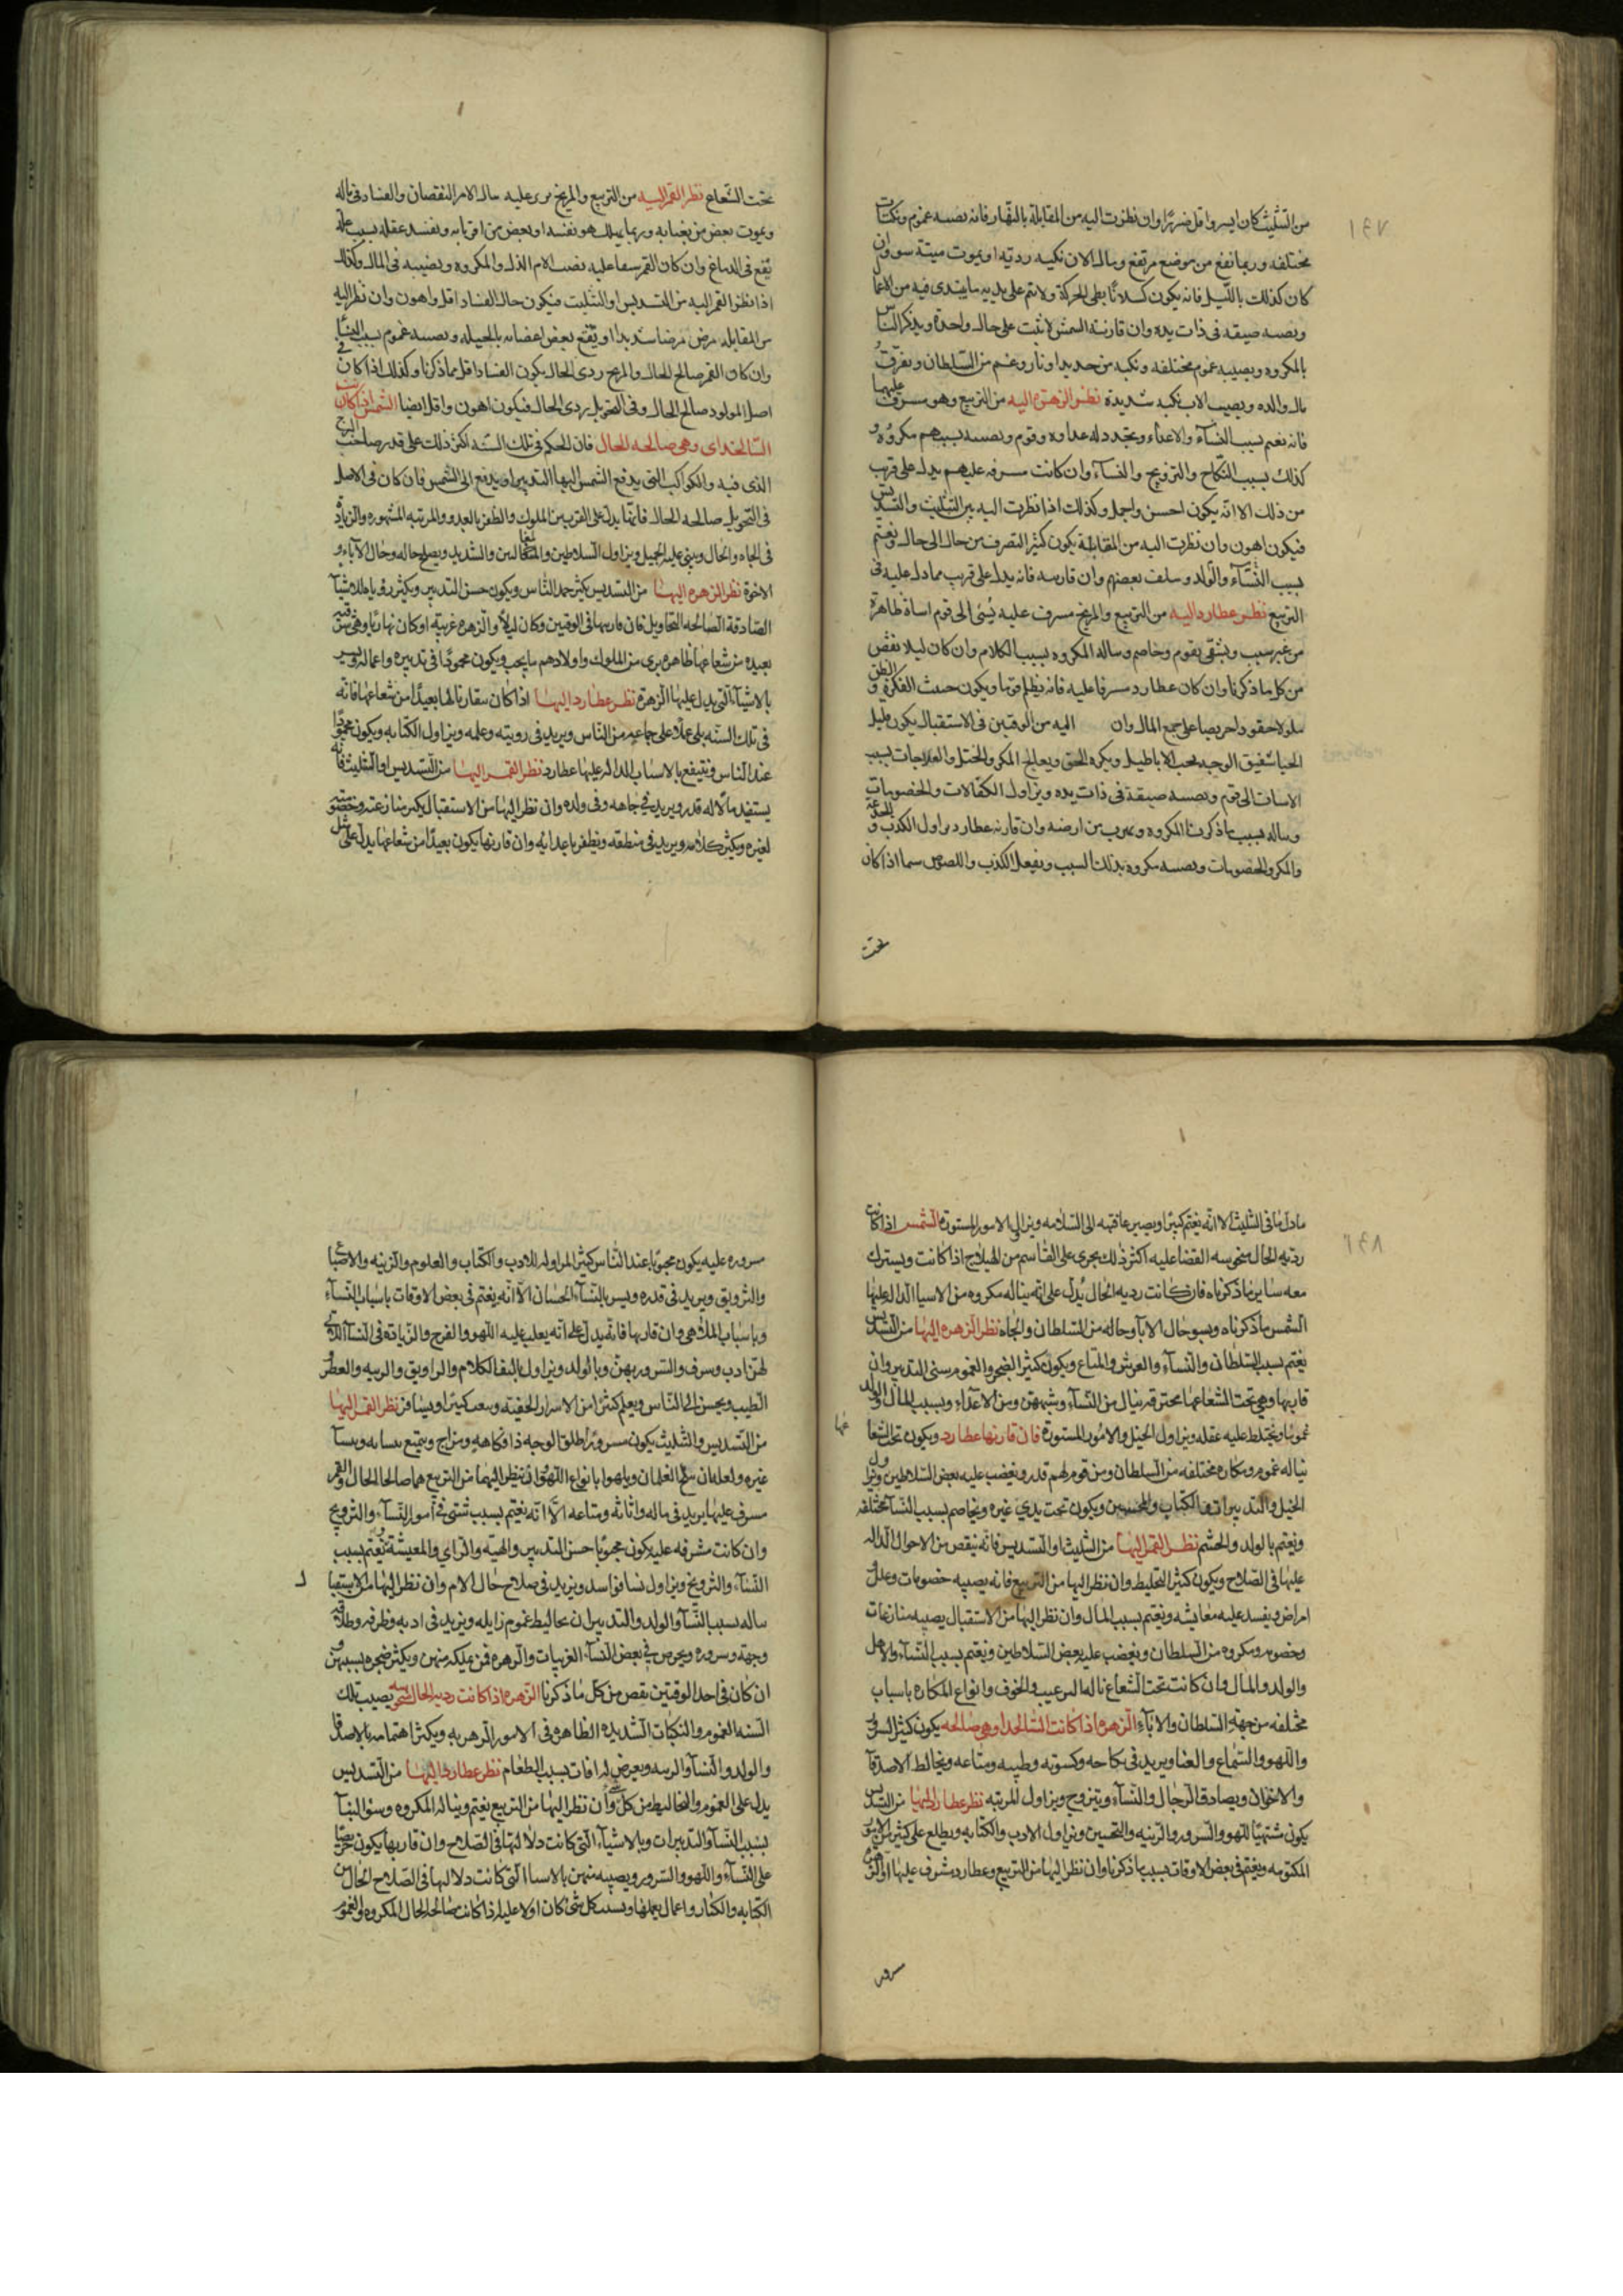 ١٩٧
من التثليث كان ايسر واقل ضررًا وان نظرت اليه من المقابلة بالنهار فانه نصسه غموم ونكبات
مختلفه وربما نفع من موضع مرتفع وساله الان نكبه رديّه او يموت ميتة سو وان
كان كذلك بالليل فانه يكون كسلانًا بطى الحركة ولا يتم على يديه ما يبتدى فيه من الاعمال
ونصسه صيقه فى ذات يده وان قارنته الشمس لا يثبت على حال واحدة ويذكر الناس
بالمكروه ويصيبه غموم مختلفه ونكبه من حديد او نار وغم من السلطان ويفرق
مال والده ويصيب الاب نكبه شديدة نظر الزهرة اليه من التربيع وهو مسرف عليهما
فانه يغم بسبب النسآء والاعدآء ويتجدد له عداوه وقوم ونصسه بسببهم مكروه و
كذلك بسبب النكاح والتزويج والنسآء وان كانت مسرفه عليهم يدل على قريب
من ذلك الا انه يكون احسن واجمل وكذلك اذا نظرت اليه من التثليث والتسديس
فيكون اهون وان نظرت اليه من المقابلة يكون كثير التصرف من حال الى حال ويغتم
بسبب النسآء والولد وسلف بعضهم وان قارسه فانه يدل على قريب مما دل عليه فى
التربيع نظر عطارد اليه من التربيع والمريخ مسرف عليه يُسئ الى قوم اساة ظاهرة
من غير سبب ويشقى بقوم وخاصم وساله المكروه بسبب الكلام وان كان ليلا نقص
من كل ما ذكرنا وان كان عطارد مسرفا عليه فانه يظلم قوما ويكون حسث الفكرة والظن
ملولا حقودا حريصا على جمع المال وان اليه من الوقتين فى الاستقبال يكون قليل
الحيا شفيق الوجه يحب الاباطيل ويكره الحق ويعالج المكر والختل والعلاجات بسبب
الاسات الى قوم ونصسه صيقة فى ذات يده ويزاول الكفالات والخصومات
وساله بسبب ما ذكرنا المكروه ويهرب من ارضه وان قارنه عطارد يزاول الكذب والخدعة
والمكر والخصومات ونصسه مكروه بذلك السبب ويفعل الكذب واللصوص سيما اذا كان
تحت
تحت الشعاع نظر القمر اليه من التربيع والمريخ يرى عليه ساله الامر النقصان والفساد فى ماله
ويموت بعض من يعنا به وربما يهلك هو نفسه او بعض من اقربابه ويفسد عقله بسبب علة
تقع فى الدماغ وان كان القمر سفا عليه يصيب الام الذل والمكروه ويصيبه فى المال وكذلك
اذا نظر القمر اليه من التسديس او التثليث فيكون حال الفساد اقل واهون وان نظر اليه
من المقابله مرض مرضا شديدا او يقتح بعض اعضابه بالحيله ونصسه غموم بسبب النسآ
وان كان القمر صالح الحال والمريخ ردى الحال يكون الفساد اقل مما ذكرنا وكذلك اذا كان فى
اصل المولود صالح الحال وفى التحويل ردى الحال فيكون اهون واقل ايضا الشمس اذا كانت
السالخداى وهى صالحه الحال فان الحكم فى تلك السنه اكثر ذلك على قدر صاحب البرج
الذى فيه والكواكب التى يدفع الشمس اليها التدبير او يدفع الى الشمس فان كان فى الاصل
فى التحويل صالحه الحال فانها يدل على القرب من الملوك والظفر بالعدو والمرتبه المشهوره والزيادة
فى الجاه والحال ويبنى عليه الجميل ويزاول السلاطين والصالحين والشديد ويصلح حاله وحال الاباء و
الاخوة نظر الزهره اليها من التسديس يكثر حمد الناس ويكون حسن التدبير ويكثر رؤياه للاشيآ
الصادقة الصالحه التحاويل فان قاربها فى الوقتين وكان ليلاً والزهره غربية او كان نهاريا وهى شرقيه
بعيده من شعاعها ظاهره يرى من الملوك واولادهم ما يحب ويكون محمودًا فى تدبيره واعماله ويسر
بالاشيآء التى يدل عليها الزهرة نظر عطارد اليها اذا كان مقارنا لها بعيدًا من شعاعها فانه
فى تلك السنه يلى عملا على جماعه من الناس ويزيد فى رويته وعلمه ويزاول الكتابه ويكون محمودًا
عند الناس وينتفع بالاسباب الدال عليها عطارد نظر القمر اليها من التسديس او التثليث فانه
يستفيد مالا له قدر ويزيد فى جاهه وفى ولده وان نظر اليها من الاستقبال يكبر منازعته وخصومته
لغيره ويكثر كلامه ويزيد فى منطقه ويظفر باعدايه وان قارنها يكون بعيدًا من شعاعها يدل على مثل
١٩٨
ما دل ما فى التثليث الا انه يغتم كثيرًا ويصير عاقبته الى السلامه ويزاول الامور المستورة الشمس اذا كانت
رديه الحال منحوسه القضا عليه اكثر ذلك يجرى على القاسم من الهيلاج اذا كانت ويسترك
معه ساير ما ذكرناه فان كانت رديه الحال يُدل على انه يناله مكروه من الاسيا الدال عليها
الشمس ما ذكرناه ويسو حال الابا وحاله من السلطان والجاه نظر الزهره اليها من التسديس
يغتم بسبب السلطان والنسآء والعرش والمتاع ويكون كثير الضجر والغموم سئ التدبير وان
قابها وهى تحت الشعاع مما يحترق ينال من النسآء وشبههن ومن الاعدآء وبسبب المال والولد
غمومًا ويختلط عليه عقله ويزاول الحيل والامور المستورة فان قارنها عطارد ويكون تحت الشعا
عها
يناله غموم ومكاره مختلفه من السلطان ومن قوم لهم قدر ويغضب عليه بعض السلاطين ويزاول
الحيل والتدبيرات الكتاب والمحسبين ويكون تحت يدى غيره ويخاصم بسبب النسآ مختلفه
ويغتم بالولد والحشم نظر القمر اليها من التثليث او التسديس فانه ينقص من الاحوال الداله
عليها فى الصلاح ويكون كثير التخليط وان نظر اليها من التربيع فانه يصيبه خصومات وعلل و
امراض ويفسد عليه معايشه ويغتم بسبب المال وان نظر اليها من الاستقبال يصيبه منازعات
وخصوم ومكروه من السلطان ويغضب عليه بعض السلاطين ويغتم بسبب النسآء والاهل
والولد والمال وان كانت تحت الشعاع ناله الرعب والخوف وانواع المكاره باسباب
مختلفه من جهة السلطان والاباء الزهره اذا كانت السالخداه وهى صالحه يكون كثير السرور
واللهو والسماع والغنا ويزيد فى نكاحه وكسوته وطيبه ومتاعه ويخالط الاصدقآ
والاخوان ويصادق الرجال والنسآء ويتزوج ويزاول المرتبه نظر عطارد اليها من التسديس
يكون مشتهيًا اللهو والسرور والزينه والتحسين ويزاول الادب والكتابه ويطلع على كثير من الامور
المكتومه ويغتم فى بعض الاوقات بسبب ما ذكرنا وان نظر اليها من التربيع وعطارد مشرف عليها او الزهره
سروره
سروره عليه يكون محبوبا عند الناس كثير المزاوله للادب والكتاب والعلوم والزينه والاصباغ
والتزويق ويزيد فى قدره ويسر بالنسآء الحسان الا انه يغتم فى بعض الاوقات باسباب النسآء
وباسباب الملاهى وان قاربها فانه يدل على انه يغلب عليه اللهو والفرح والزيادة فى النسآ اللاتى
لهن ادب وسرف والسرور بهن وبالولد ويزاول بالبقا الكلام والزاويق والريه والعطر و
الطيب ويحسن الى الناس ويعلم كثيرا من الاسرار الخفيّه ويبعد كثيرا ويسافر نظر القمر اليها
من التسديس والتثليث يكون مسرورًا طلق الوجه ذا فكاهه ومزاح ويتمتع بنسايه ونسآ
غيره ولعلمان الغلمان ويلهوا بانواع اللهو وان نظر اليهما من التربيع هما صالحا الحال والقمر
مسرف عليها يزيد فى ماله واثاثه ومتاعه الا انه يغتم بسبب شتى فى امور النسآء والتزويج
وان كانت مشرفه عليه يكون محبوبًا حسن التدبير والهيه والراى والمعيشة ويغتم بسبب
النسآء والتزويج ويزاول نسا فواسد ويزيد فى صلاح حال الام وان نظر اليها من الاستقبا
ل
ساله بسبب النسآ والولد والتدبير ان تخاليط غموم زايله ويزيد فى ادبه وظرفه وطلاقه
وجهه وسروره ويحرص فى بعض النسآء الغربيات والزهره فمن يملكه منهن ويكثر ضجره بسببهن و
ان كان فى احد الوقتين نقص من كل ما ذكرنا الزهره اذا كانت رديه الحال منحوسه يصيب تلك
السنه الغموم والنكبات الشديده الظاهره فى الامور الزهريه ويكثر اهتمامه بالاصل
والولد والنسآ والريه ويعرض له افات بسبب الطعام نظر عطارد اليها من التسديس
يدل على الغموم والتخاليط من كل شى وان نظر اليها من التربيع يغتم ويناله المكروه وسؤ الثنآ
بسبب النسآ والتدبيرات وبالاشيآء التى كانت دلالتها فى الصلاح وان قاربها يكون حريصًا
على النسآء واللهو والسرور ويصيبه منهن بالاسيا التى كانت دلالتها فى الصلاح الحال من
الكتابه والكتاب واعمال يعملها وبسبب كل شئ كان اولا عليه اذا كانت صالحه الحال المكروه والغموم